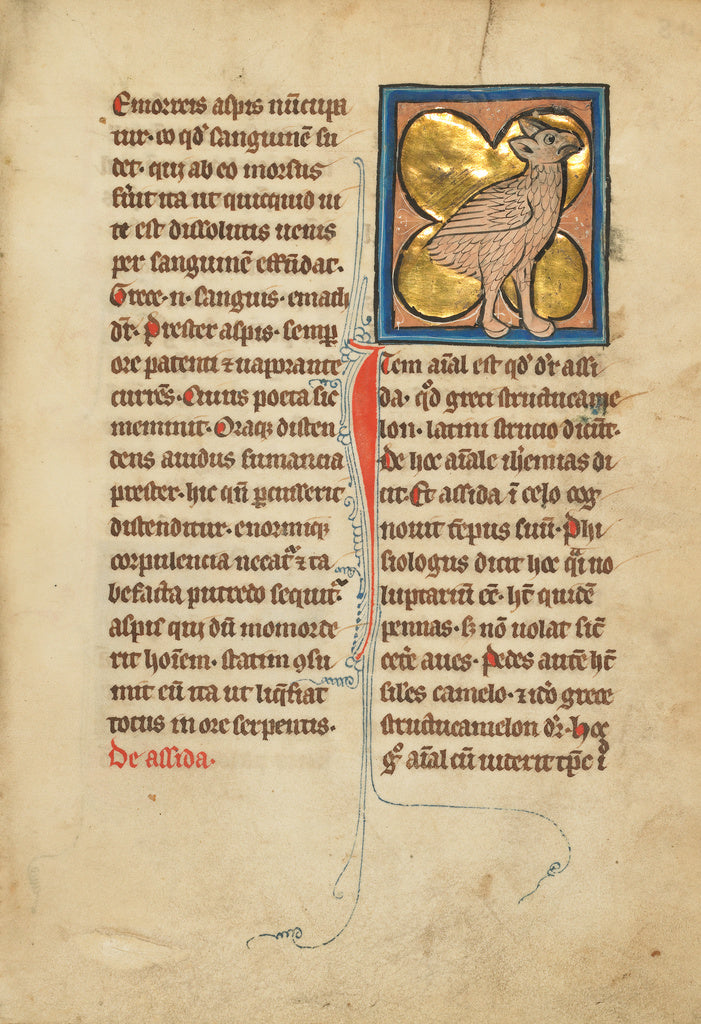 Emorrois aspis nūcupa
tur· eo qd̕ sanguinē su
det· qui ab eo morsus
fūit ita ut quicquid ui
te est dissolutis uenis
per sanguinē effūdat·
Grece·n· sanguis· emath
dr̄· Prester aspis· semꝑ
ore patenti ⁊ uaporante
currēs· Cuius poeta sic
meminit· Oraq disten
dens auidus fumancia
prester· hic qn̄ ꝑcusserit
distenditur· enormiq
corpulencia necat᷑ ⁊ ta
befacta putredo sequit᷑
aspis qui dū momorde
rit hoīem· statim ꝯsu
mit eū ita ut liq̄fiat
totus in ore serpentis·
De assida·
Item aīal est qd̕ dr̄ assi
da· qd̕ greci structicame
lon· latini strucio dicūt·
De hoc aīale ihemias di
cit· Et assida ī celo cog
nouit tēpus suū· Phi
siologus dicit hoc q̄i uo
luptariū eē· ht̄ quidē
pennas· sꝫ nō uolat sic̄
cetē aues· Pedes autē ht̄
siles camelo· ⁊ ido grece
structicamelon dr̄· hoc
gͦ aīal cū uiderit tp̄c ı